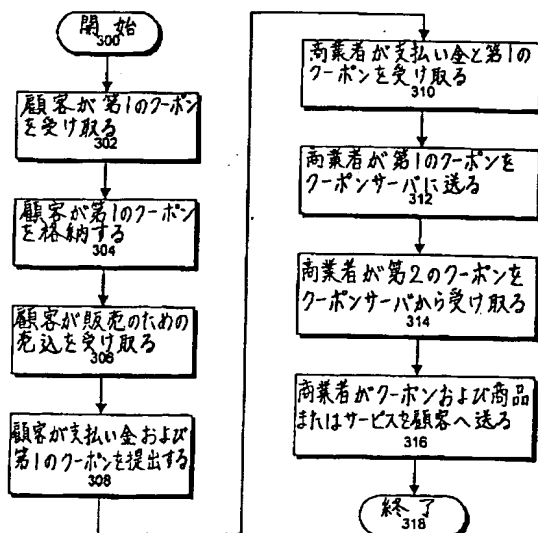 開始
300
顧客が第1のクーポン
を受け取る
302
顧客が第1のクーポン
を格納する
304
顧客が販売のための
売込を受け取る
306
顧客が支払い金および
第1のクーポンを提出する
308
商業者が支払い金と第1の
クーポンを受け取る
310
商業者が第1のクーポンを
クーポンサーバに送る
312
商業者が第2のクーポンを
クーポンサーバから受け取る
314
商業者がクーポンおよび商品
またはサービスを顧客へ送る
316
終了
318